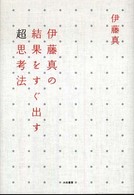 伊藤真
伊藤真の
結果をすぐ出す
超思考法